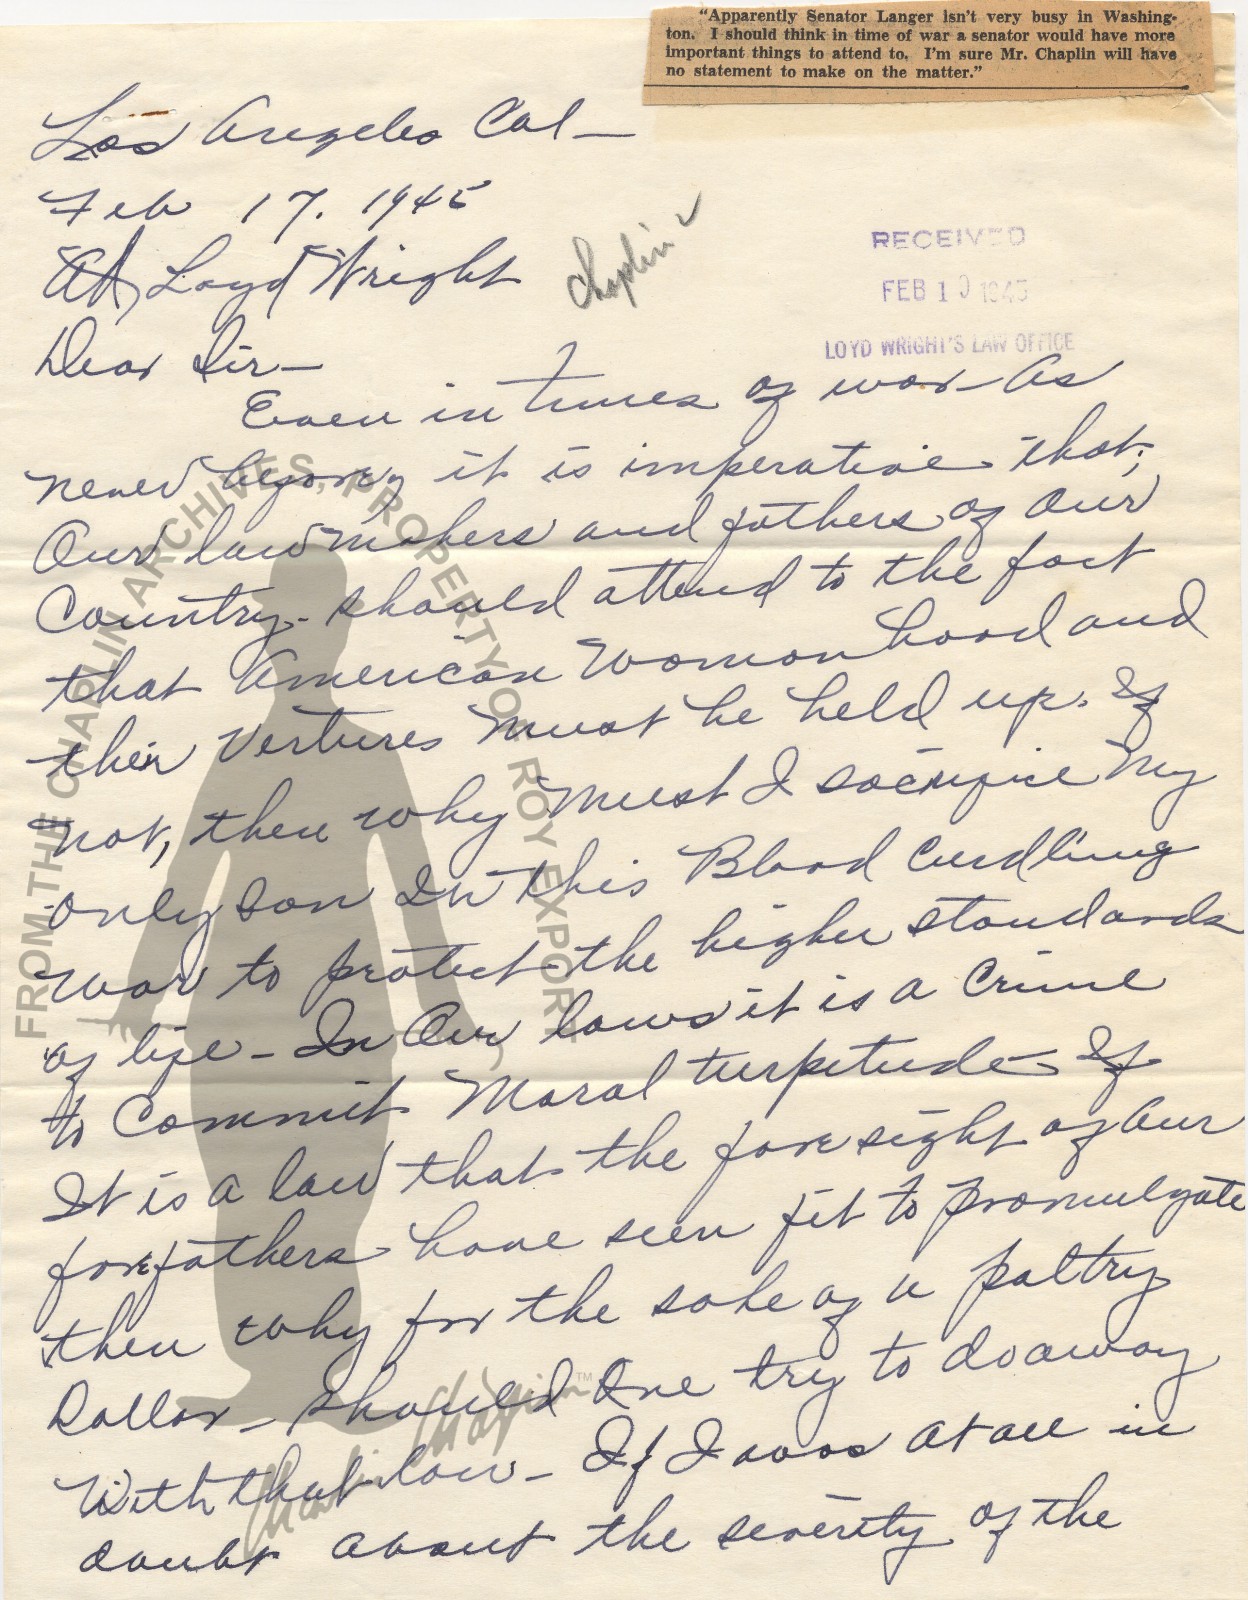 "Apparently Senator Langer isn't very busy in Washing-
ton. I should think in time of war a senator would have more
important things to attend to. I'm sure Mr. Chaplin will have
no statement to make on the matter."
Los Angeles Cal—
Feb 17. 1945
Loyd Wright
Chaplin
RECEIVED
FEB 1 1945
LOYD WRIGHT'S LAW OFFICE
Dear Sir—
Even in times of war—As
never before, it is imperative that,
Our lawmakers and fathers of Our
Country—should attend to the fact
that American Womanhood and
their Vertures Must be held up. If
not, then why Must I sacrifice My
only son In this Blood Curdling
War to protect the higher standards
of life—In Our laws it is a Crime
to Commit Moral turpitude—If
It is a law that the fore sight of Our
forefathers have seen fit to promulgate
then why for the sake of a paltry
Dollar—should One try to do away
With that law—If I was At all in
doubt About the severity of the
FROM THE CHAPLIN ARCHIVES, PROPERTY OF ROY EXPORT
Charlie Chaplin™